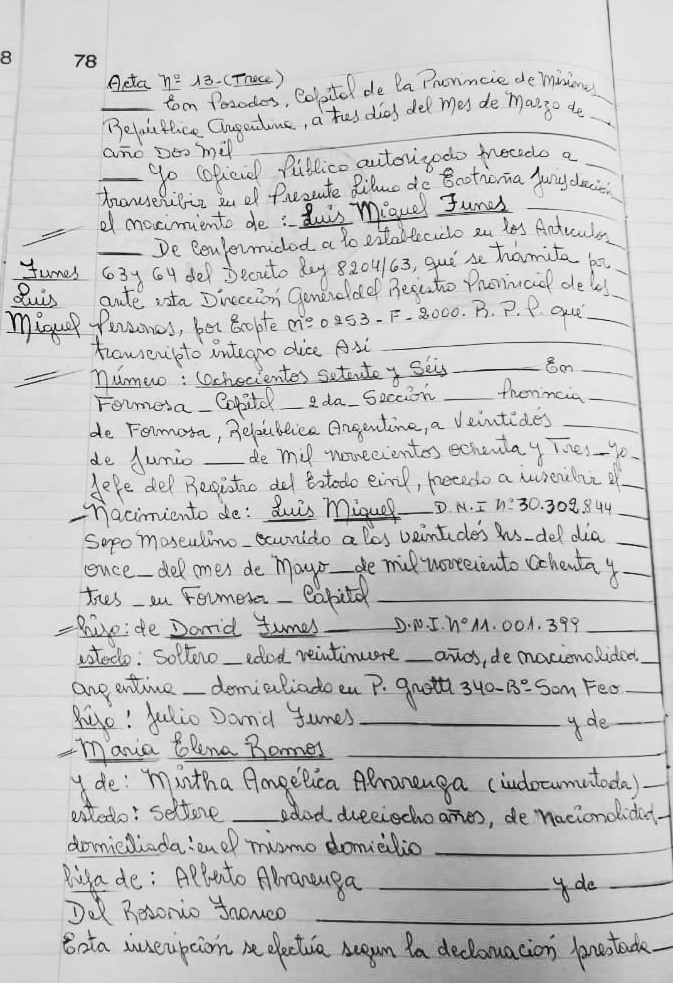 8
78
Acta nº 13-(Trece)
En Posadas, Capital de la Provincia de Misiones
República Argentina, a tres días del Mes de Marzo de
año Dos mil
Yo Oficial Público autorizado procedo a
transcribir en el Presente Libro de Extraña Jurisdicción
el nacimiento de :- Luis Miguel Funes
De Conformidad a lo establecido en los Artículos
63 y 64 del Decreto Ley 8204/63, que se trámita por
ante esta Dirección General del Registro Provincial de las
Personas, por Expte nº 0253-F-2000. R.P.P. que
transcripto integro dice Así
Funes
Luis
Miguel
número : Ochocientos Setenta y Séis En
Formosa - Capital 2da - Sección Provincia
de Formosa, República Argentina, a Veintidós
de Junio de mil novecientos ochenta y Tres - yo
Jefe del Registro del Estado civil, procedo a inscribir el
Nacimiento de: Luis Miguel D.N.I nº 30.302.844
Sexo Masculino - ocurrido a las veintidós hs - del día
once - del mes de Mayo - de mil novecientos Ochenta y
tres - en Formosa - Capital
hijo: de David Funes D.N.I. nº 11.001.399
estado: Soltero - edad veintinueve años, de nacionalidad
argentina - domiciliado en P. Grotti 340-Bº San Fco
hijo: Julio David Funes y de
María Elena Ramos
y de: Mirtha Angélica Alvarenga (indocumentada)
estado: Soltera edad dieciocho años, de Nacionalidad
domiciliada: en el mismo domicilio
hija de: Alberto Alvarenga y de
Del Rosario Franco
Esta inscripción se efectúa según la declaración prestada